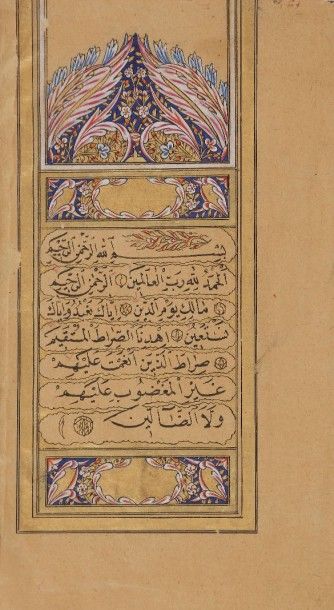 بِسْمِ اللهِ الرَّحْمٰنِ الرَّحِيْمِ
اَلْحَمْدُ لِلّٰهِ رَبِّ الْعَالَمِيْنَ الرَّحْمٰنِ الرَّحِيْمِ
مَالِكِ يَوْمِ الدِّيْنِ اِيَّاكَ نَعْبُدُ وَاِيَّاكَ
نَسْتَعِيْنُ اِهْدِنَا الصِّرَاطَ الْمُسْتَقِيْمَ
صِرَاطَ الَّذِيْنَ اَنْعَمْتَ عَلَيْهِمْ
غَيْرِ الْمَغْضُوْبِ عَلَيْهِمْ
وَلَا الضَّٓالِّيْنَ